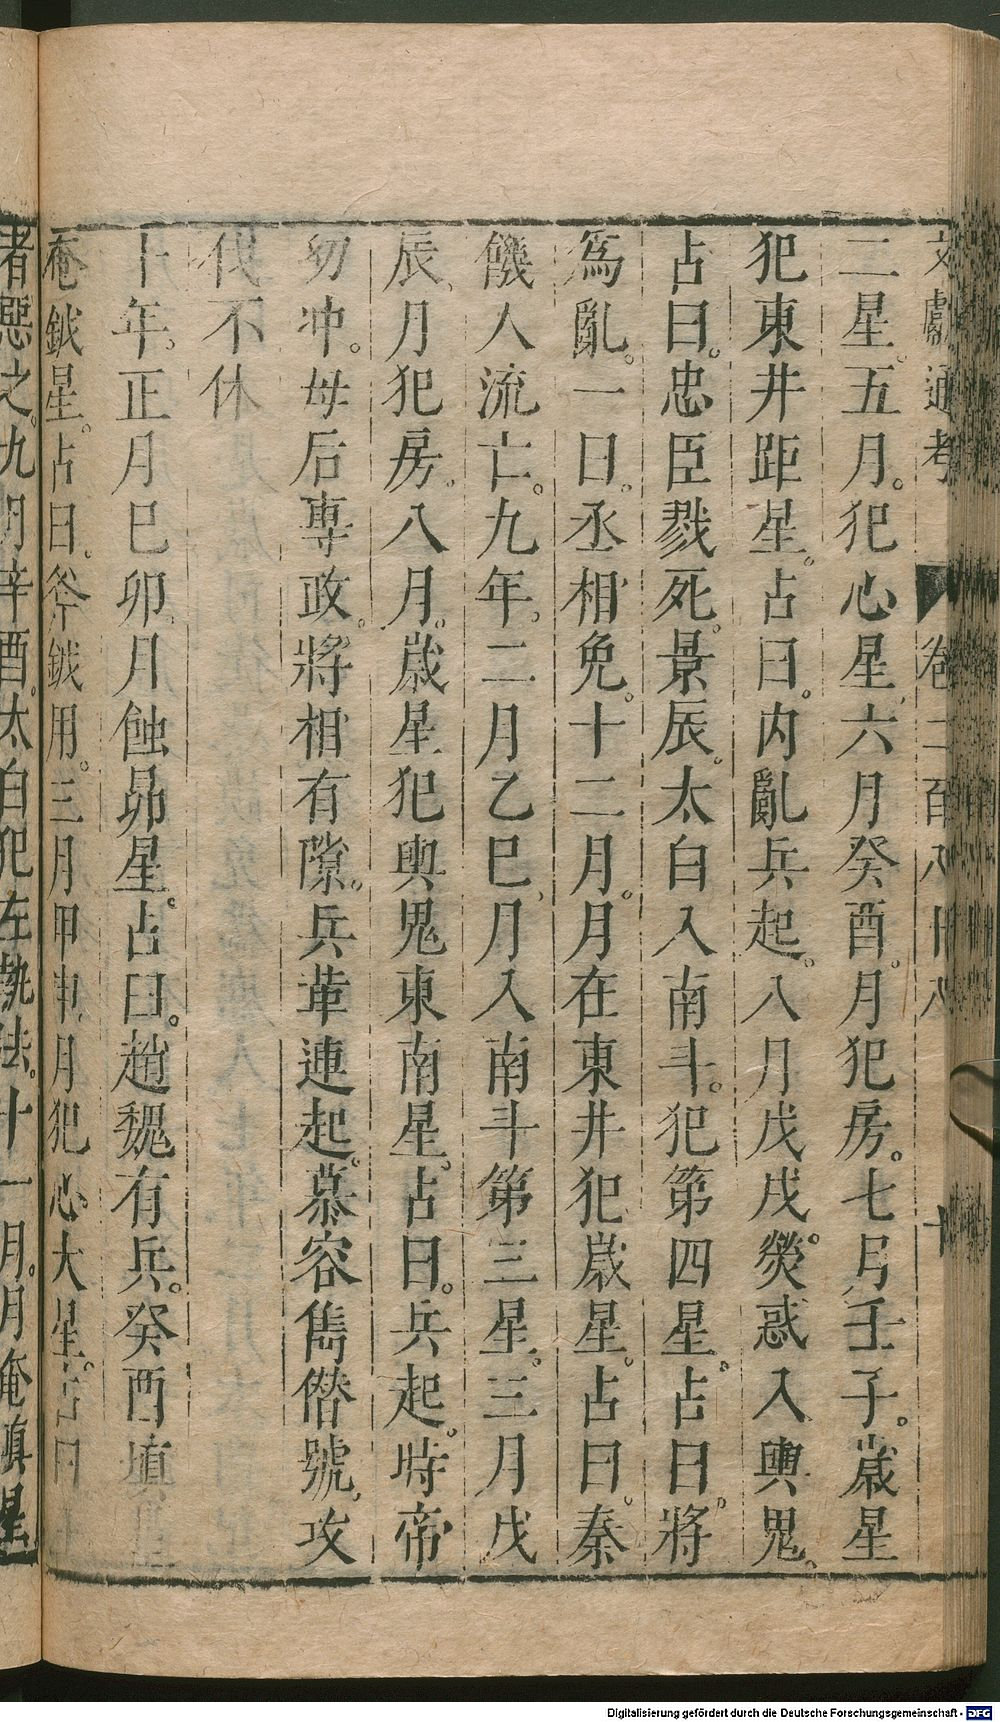 文獻通考 卷二百八十八 十
二星。五月。犯心星、六月癸酉。月犯房。七月壬子。歲星
犯東井距星。占曰。內亂兵起。八月戊戌。熒惑入輿鬼。
占曰。忠臣戮死。景辰。太白入南斗。犯第四星。占曰。將
爲亂。一曰。丞相免。十二月。月在東井犯歲星。占曰。秦
饑人流亡。九年。二月乙巳、月入南斗第三星。三月戊
辰、月犯房。八月。歲星犯輿鬼東南星。占曰。兵起。時帝
幼冲。母后專政。將相有隙。兵革連起。慕容雋僭號。攻
伐不休
十年。正月巳卯、月蝕昴星。占曰。趙魏有兵。癸酉塡星
奄鉞星。占曰、斧鉞用。三月甲申、月犯心大星。占曰
者惡之。九月辛酉。太白犯左執法。十一月。月奄塡星
Digitalisierung gefördert durch die Deutsche Forschungsgemeinschaft - DFG